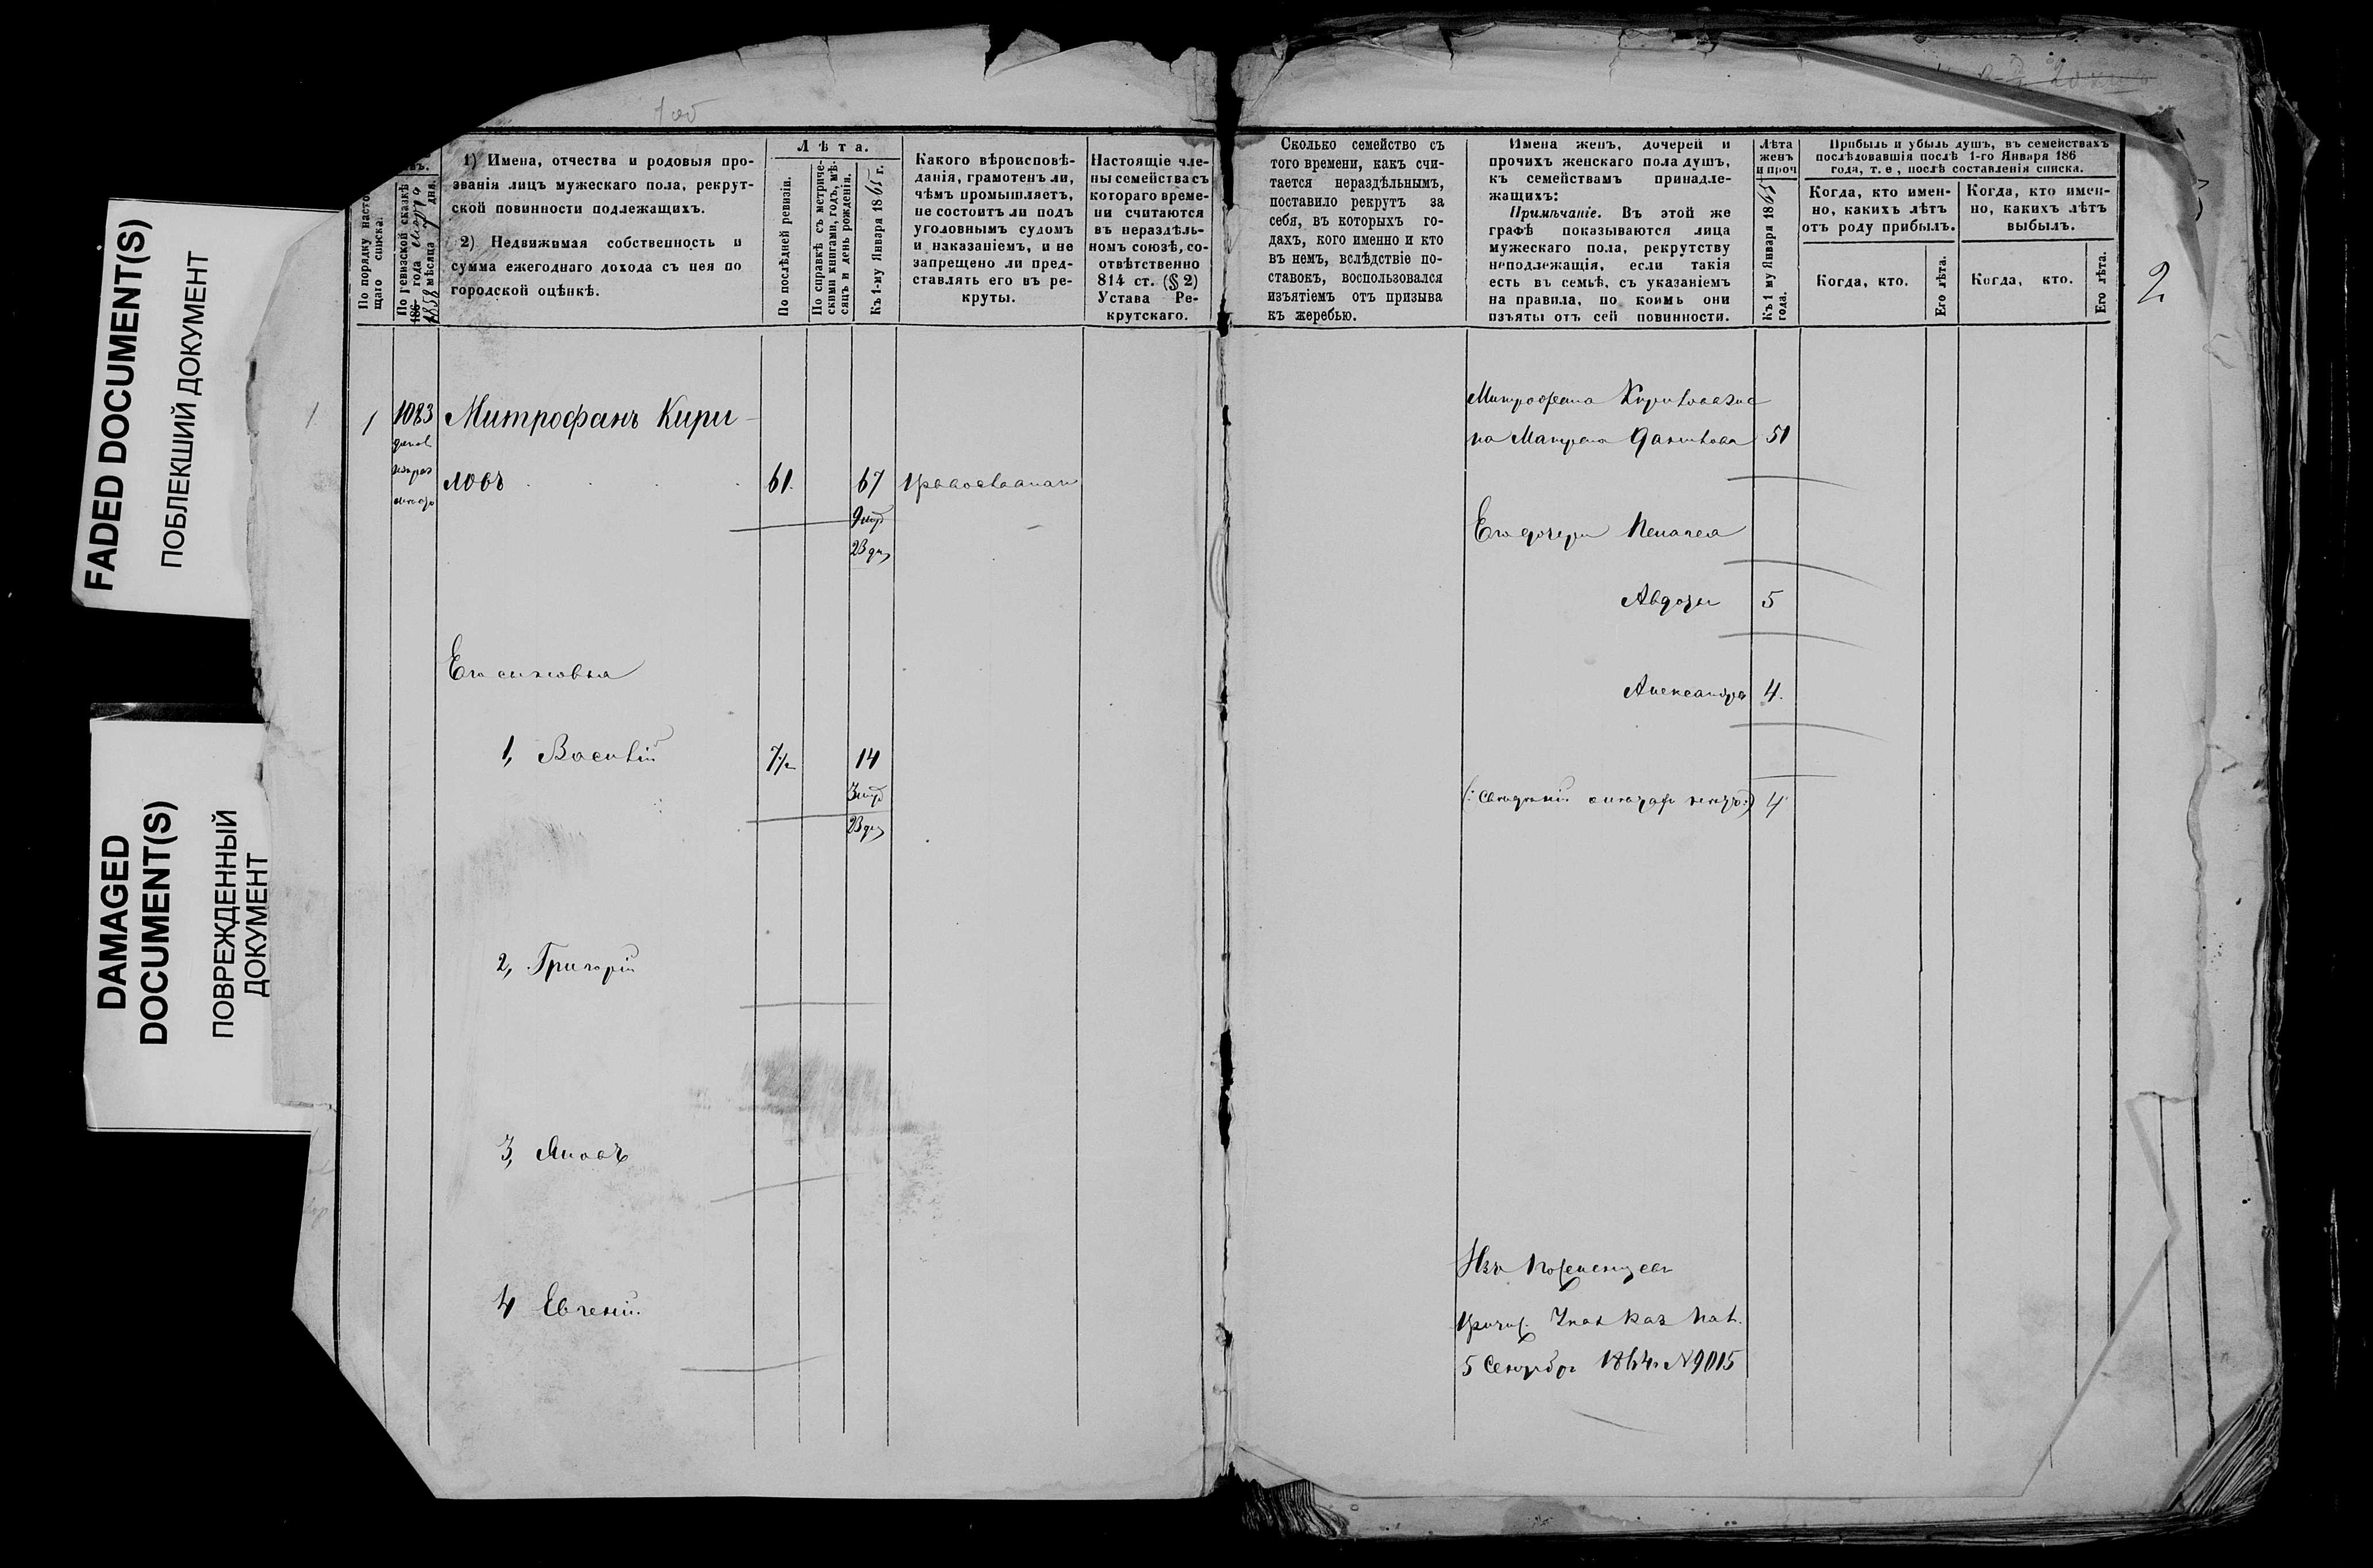 FADED DOCUMENT(S)
ПОБЛЕКШИЙ ДОКУМЕНТ
DAMAGED
DOCUMENT(S)
ПОВРЕЖДЕННЫЙ
ДОКУМЕНТ
По порядку насто
щаго списка.
По ревизской сказкѣ
186 года
1858 мѣсяца дня.
1) Имена, отчества и родовыя про-
званія лицъ мужескаго пола, рекрут-
ской повинности подлежащихъ.
2) Недвижимая собственность и
сумма ежегоднаго дохода съ нея по
городской оцѣнкѣ.
Лѣта.
По послѣдней ревизіи.
По справкѣ съ метриче-
скими книгами, годъ, мѣ-
сяцъ и день рожденія.
Къ 1-му Января 1865 г.
Какого вѣроисповѣ-
данія, грамотенъ ли,
чѣмъ промышляетъ,
не состоитъ ли подъ
уголовнымъ судомъ
и наказаніемъ, и не
запрещено ли пред-
ставлять его въ ре-
круты.
Настоящіе чле-
ны семейства съ
котораго време-
ни считаются
въ нераздѣль-
номъ союзѣ, со-
отвѣтственно
814 ст. (§ 2)
Устава Ре-
крутскаго.
1
1
1083
Митрофанъ Кири-
ловъ
61.
67
23
Его сыновья
1, Василій
7 1/2
14
23
2, Григорій
3,
4 Евгеній
Сколько семейство съ
того времени, какъ счи-
тается нераздѣльнымъ,
поставило рекрутъ за
себя, въ которыхъ го-
дахъ, кого именно и кто
въ немъ, вслѣдствіе по-
ставокъ, воспользовался
изъятіемъ отъ призыва
къ жеребью.
Имена женъ, дочерей и
прочихъ женскаго пола душъ,
къ семействамъ принадле-
жащихъ:
Примѣчаніе. Въ этой же
графѣ показываются лица
мужескаго пола, рекрутству
неподлежащія, если такія
есть въ семьѣ, съ указаніемъ
на правила, по коимъ они
изъяты отъ сей повинности.
Лѣта
женъ
и проч
Къ 1 му Января 1865
года.
Прибыль и убыль душъ, въ семействахъ
послѣдовавшія послѣ 1-го Января 186
года, т. е, послѣ составленія списка.
Когда, кто имен-
но, какихъ лѣтъ
отъ роду прибылъ.
Когда, кто имен-
но, какихъ лѣтъ
выбылъ.
Когда, кто.
Его лѣта.
Когда, кто.
Его лѣта.
2
Митрофана Кирилова
51
Его дочери
Авдотья
5
Александра
4.
4
Изъ
5 Сентября 1864 N 9015